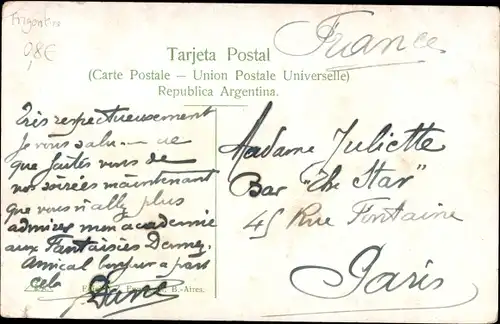 0,8€
France
Tarjeta Postal
(Carte Postale – Union Postale Universelle)
Republica Argentina.
Très respectueusement
Je vous salu
que faites vous de
vos soirées maintenant
que vous n'allez plus
admirer mon academie
aux Fantaisies
Amical bonjour a part
cela
B.-Aires.
Madame Juliette
Bar "The Star"
45 Rue Fontaine
Paris